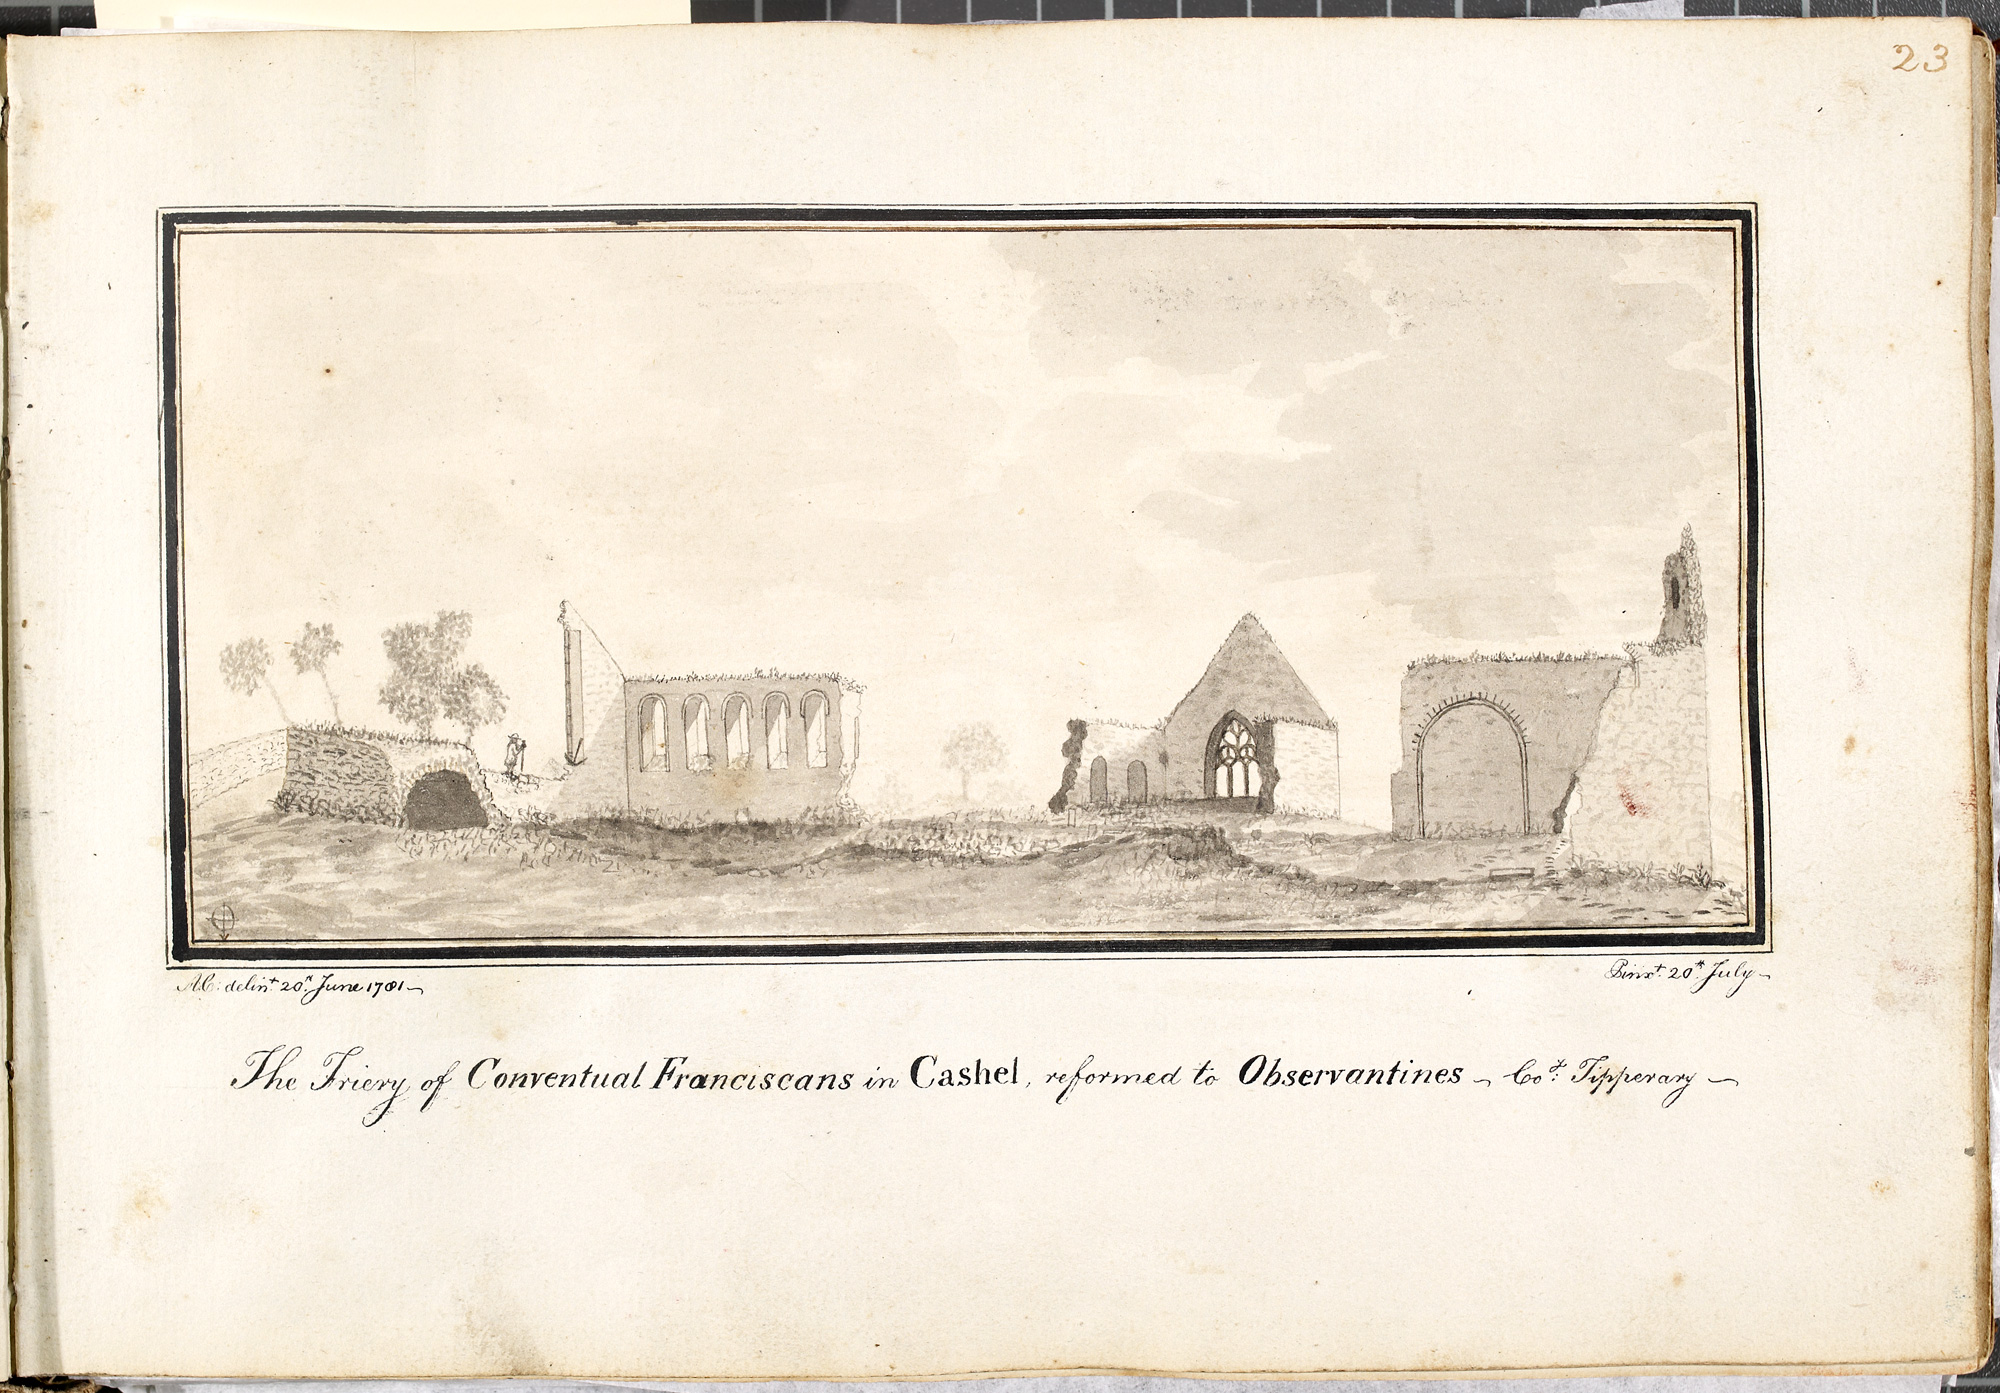 23
A.C: delint. 20th. June 1781
Pinxt. 20th. July
The Friery of Conventual Franciscans in Cashel, reformed to Observantines - Coy: Tipperary